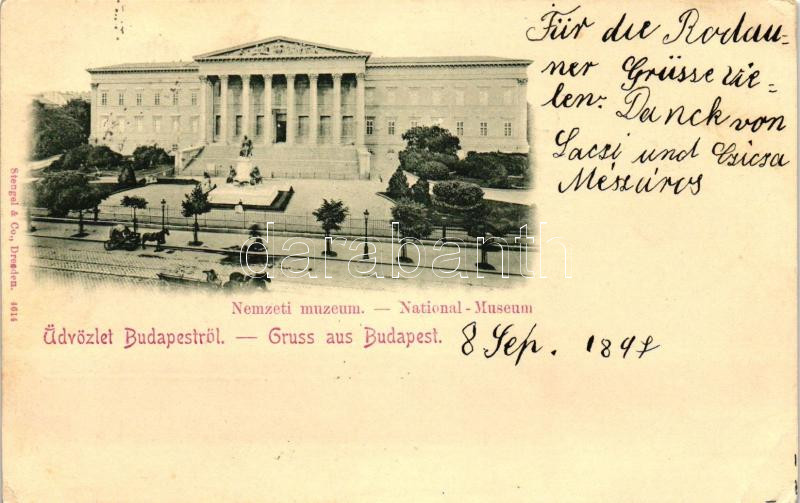 Für die Rodau-
ner Grüsse vie-
len Danck von
Lacsi und Csicsa
Mészáros
Stengel & Co., Dresden. 4614
darabanth
Nemzeti muzeum. — National-Museum
Üdvözlet Budapestről. — Gruss aus Budapest.
8 Sep. 1897